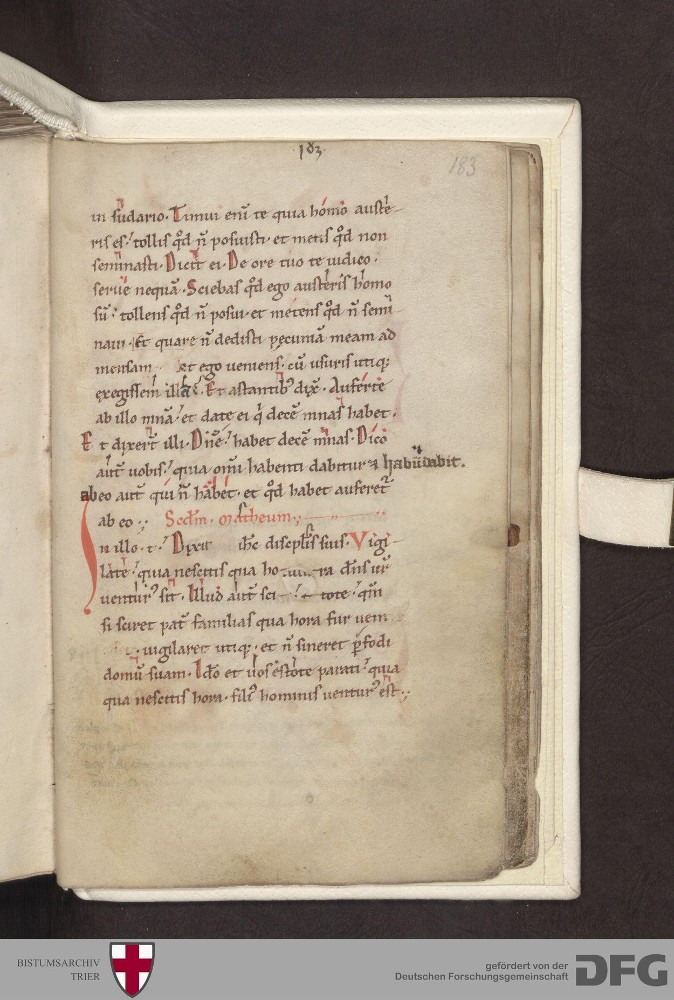 183
183
in sudario. Timui eni̅ te quia homo auste-
ris es. tollis qd̅ n̅ posuisti. et metis qd̅ non
seminasti. Dicit ei. De ore tuo te iudico.
serue nequa̅. Sciebas qd̅ ego austeris homo
su̅. tollens qd̅ n̅ posui. et metens qd̅ n̅ semi
naui. Et quare n̅ dedisti pęcunia̅ meam ad
mensam et ego ueniens. cu̅ usuris utiq;
exegissem illa. Et astantib9 dix̅. Auferte
ab illo mna̅. et date ei q̇ dece̅ mnas habet.
Et dixer̅t illi. Dn̅e. habet dece̅ mnas. Dico
aut̅ uobis. quia om̅i habenti dabitur & habundabit.
abeo aut̅ qui n̅ habet. et qd̅ habet auferet̅
ab eo. Scd̅m. matheum.
In illo. t. Dixit ih̅c discipl̅is suis. Vigi-
late. quia nescitis qua ho ra dn̅s ur̅
uentur9 sit. Illud aut̅ sci tote. qm̅
si sciret pat̅ familias qua hora fur ueni
uigilaret utiq;. et n̅ sineret p̅fodi
domu̅ suam. Ido̅ et uos estote parati. quia
qua nescitis hora. fili9 hominis uentur9 est.
BISTUMSARCHIV
TRIER
gefördert von der
Deutschen Forschungsgemeinschaft
DFG